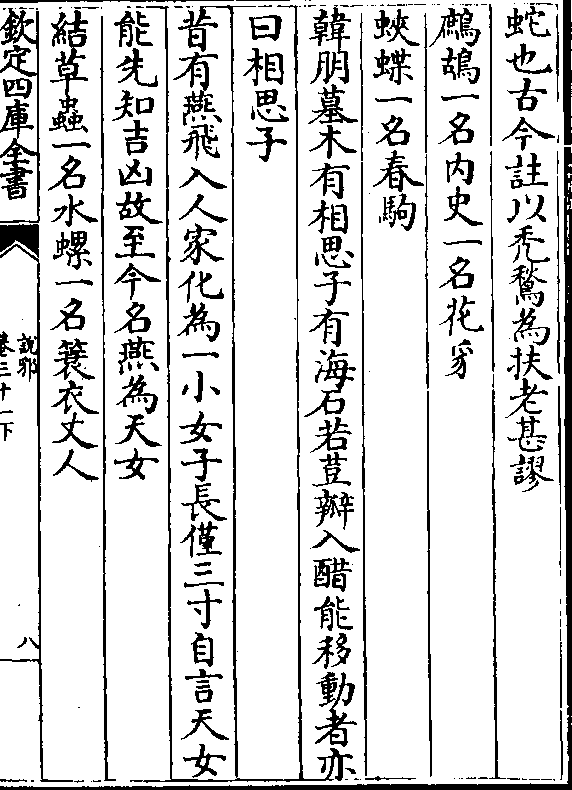 蛇也古今註以禿鶖為扶老甚謬
鷓鴣一名内史一名花豸
蛺蝶一名春駒
韓朋墓木有相思子有海石若荳瓣入醋能移動者亦
曰相思子
昔有燕飛入人家化為一小女子長僅三寸自言天女
能先知吉凶故至今名燕為天女
結草蟲一名水螺一名簑衣丈人
欽定四庫全書
說郛
卷三十一下
八